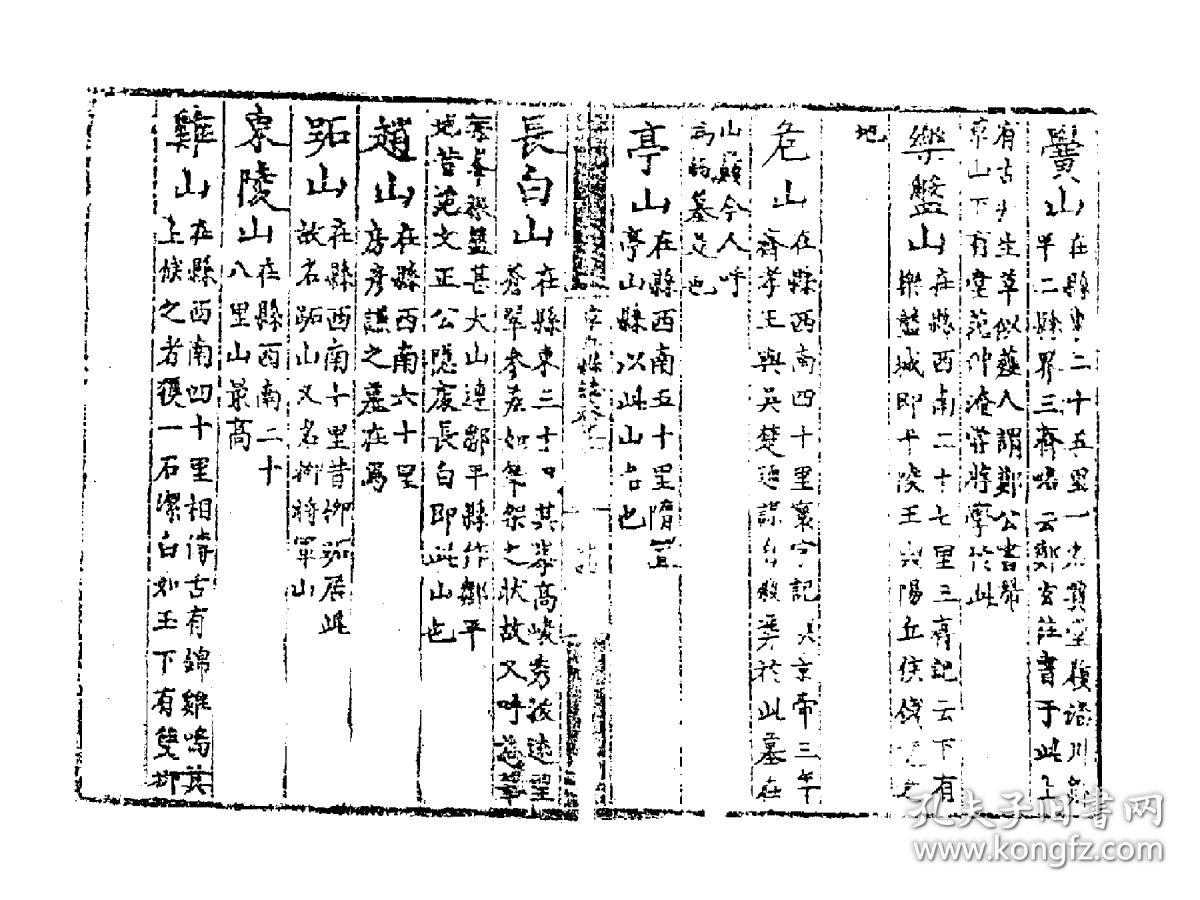 黌山在縣東二十五里一名黌堂嶺淄川鄒
平二縣界三齊略云鄭玄註書于此上
有古井生草似薤人謂鄭公書帶
山下有堂范仲淹嘗將學於此
樂盤山在縣西南二十七里三齊記云下有
樂盤城即平陵王與陽丘侯
地
危山在縣西南四十里寰宇記 景帝三年
齊孝王與吳楚連謀自殺葬於此墓在
山巔今人呼
為 墓是也
亭山在縣西南五十里隋
亭山縣以此山占也
長白山在縣東三十 其峯高峻秀
蒼翠參差如 架之狀故又呼
盤甚大山連鄒平縣作鄒平
地昔范文正公隱處長白即此山也
趙山在縣西南六十里
房彥謙之墓在焉
跖山在縣西南十里昔柳跖居此
故名跖山又名 將軍山
東陵山在縣西南二十
八里山最高
雞山在縣西南四十里相傳古有錦雞鳴其
上候之者獲一石潔白如玉下有雙柳
孔夫子旧书网
www.kongfz.com